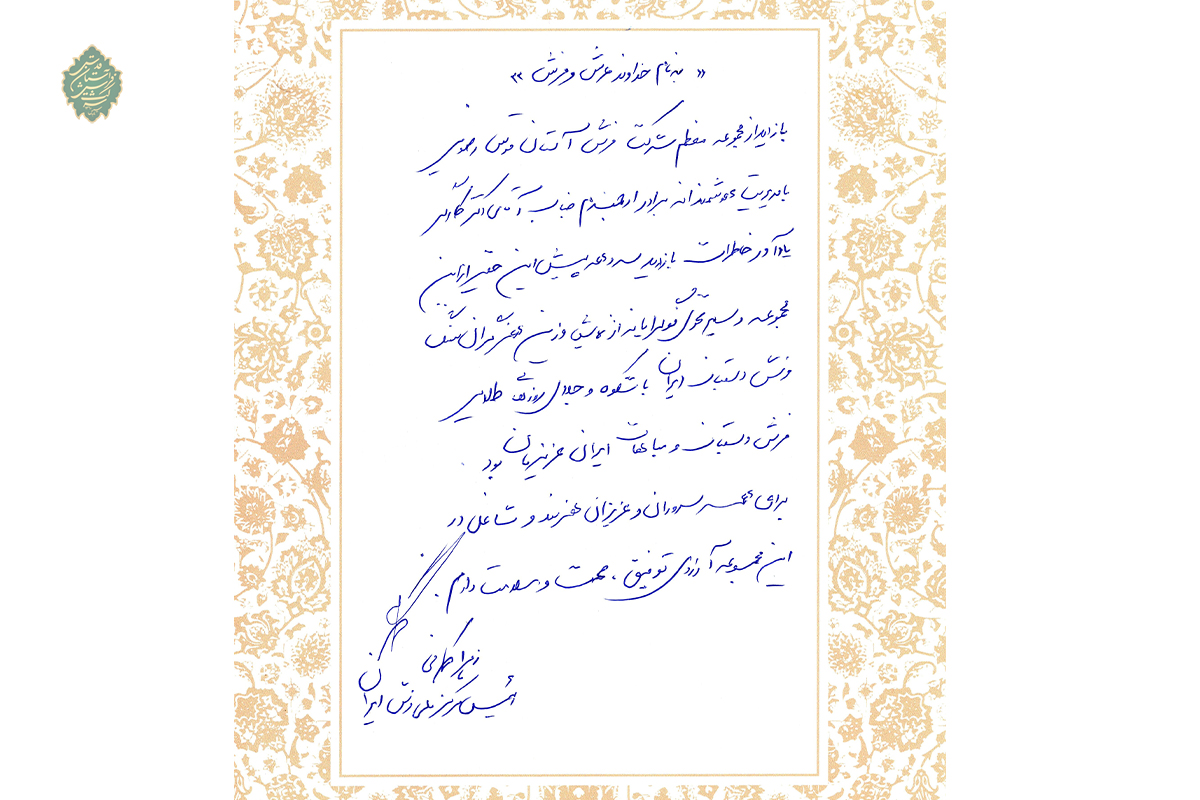 « بنام خداوند عرش و فرش »
بازدید از مجموعه معظم شرکت فرش آستان قدس رضوی
با مدیریت هوشمندانه برادر ارجمندم جناب آقای دکتر
یادآور خاطرات بازدید سه دهه پیش این حقیر از این
مجموعه و سیر تحولی از نمایش وزین هنر گران سنگ
فرش دستباف ایران با شکوه و جلال روزهای طلایی
فرش دستباف و مباهات ایران عزیزمان بود.
برای همه سروران و عزیزان هنرمند و شاغل در
این مجموعه آرزوی توفیق، صحت و سلامت دارم.
زهرا کمانی
رئیس مرکز ملی فرش ایران